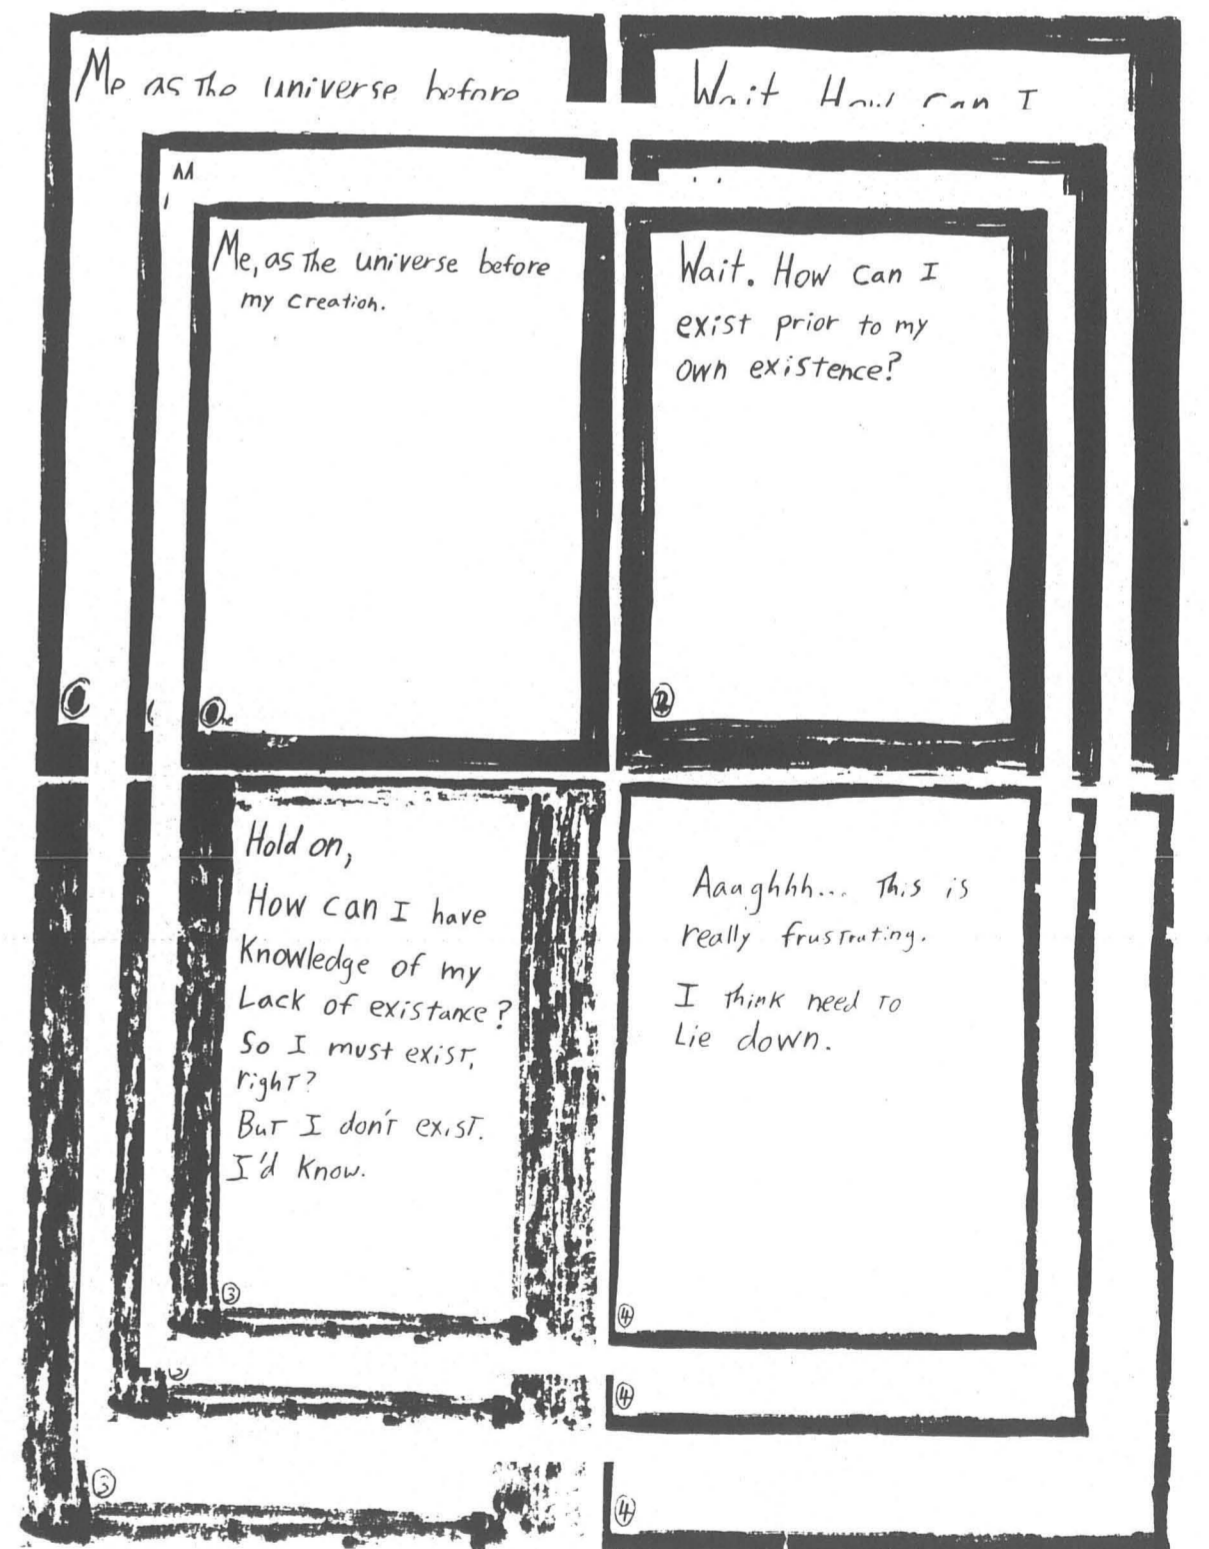 Me as The universe before
Wait How can I
M
Me, as The universe before
my creation.
One
Wait. How can I
exist prior to my
own existence?
2
Hold on,
How can I have
Knowledge of my
Lack of existance?
So I must exist,
righT?
BuT I don'T exisT.
I'd Know.
3
Aaaghhh... This is
really frusTrating.
I Think need To
Lie down.
4
3
4
3
4